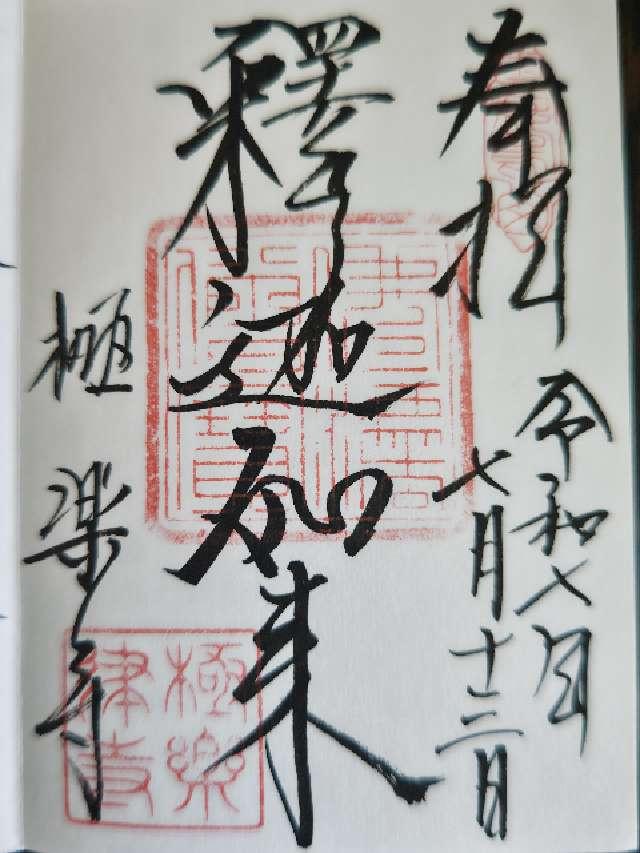 奉拝
令和七年
七月十三日
釋迦如来
極楽寺
極樂
律寺